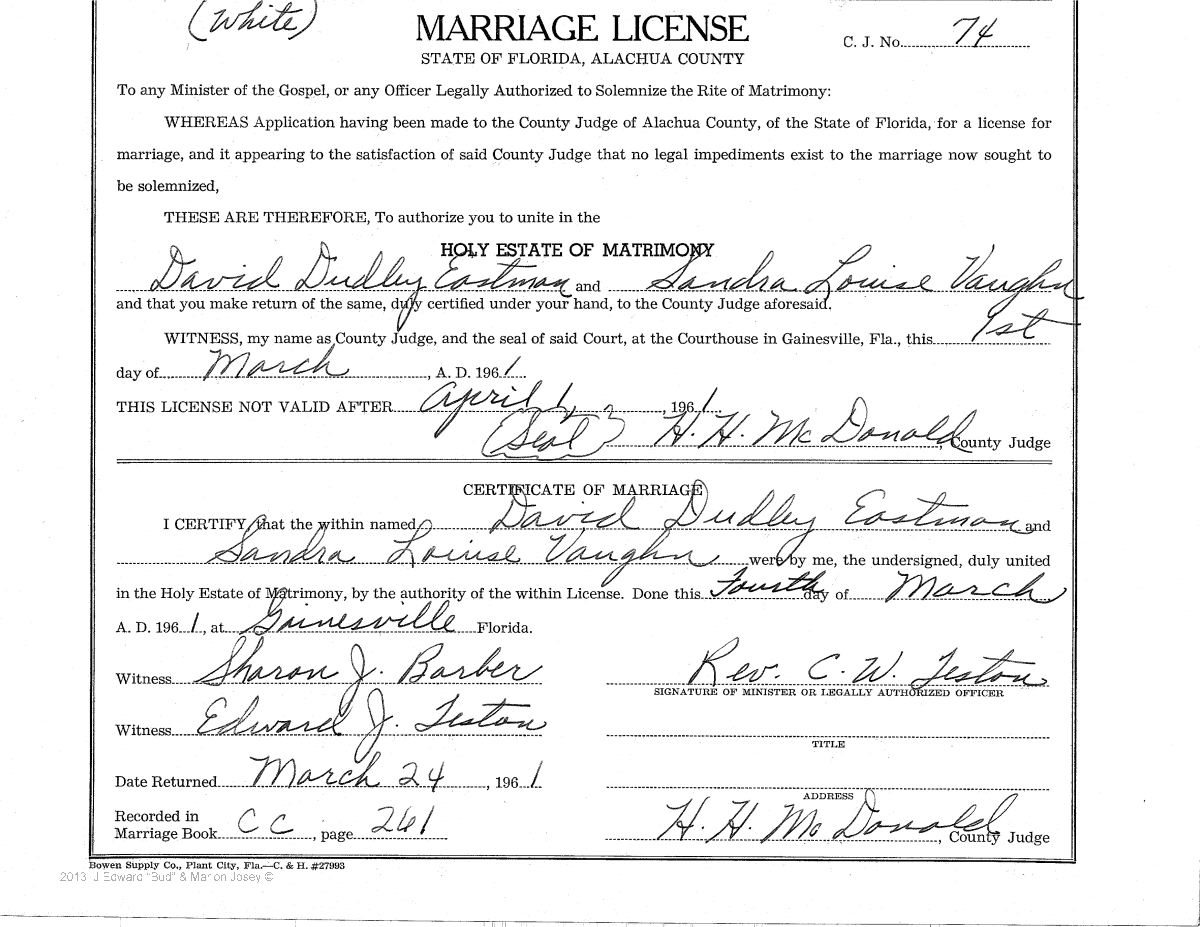 (White)
MARRIAGE LICENSE
C. J. No. 74
STATE OF FLORIDA, ALACHUA COUNTY
To any Minister of the Gospel, or any Officer Legally Authorized to Solemnize the Rite of Matrimony:
WHEREAS Application having been made to the County Judge of Alachua County, of the State of Florida, for a license for
marriage, and it appearing to the satisfaction of said County Judge that no legal impediments exist to the marriage now sought to
be solemnized,
THESE ARE THEREFORE, To authorize you to unite in the
HOLY ESTATE OF MATRIMONY
David Dudley Eastman and Sandra Louise Vaughn
and that you make return of the same, duly certified under your hand, to the County Judge aforesaid.
WITNESS, my name as County Judge, and the seal of said Court, at the Courthouse in Gainesville, Fla., this 1st
day of March, A. D. 1961
THIS LICENSE NOT VALID AFTER April 1, 1961
(Seal) H. H. McDonald, County Judge
CERTIFICATE OF MARRIAGE
I CERTIFY, that the within named David Dudley Eastman and
Sandra Louise Vaughn were by me, the undersigned, duly united
in the Holy Estate of Matrimony, by the authority of the within License. Done this Fourth day of March
A. D. 1961, at Gainesville Florida.
Witness Sharon J. Barber
Rev. C. W. Teston
SIGNATURE OF MINISTER OR LEGALLY AUTHORIZED OFFICER
Witness Edward J. Teston
TITLE
Date Returned March 24, 1961
ADDRESS
Recorded in
Marriage Book CC, page 261
H. H. McDonald, County Judge
Bowen Supply Co., Plant City, Fla.—C. & H. #27993
2013 J Edward "Bud" & Marion Josey ©